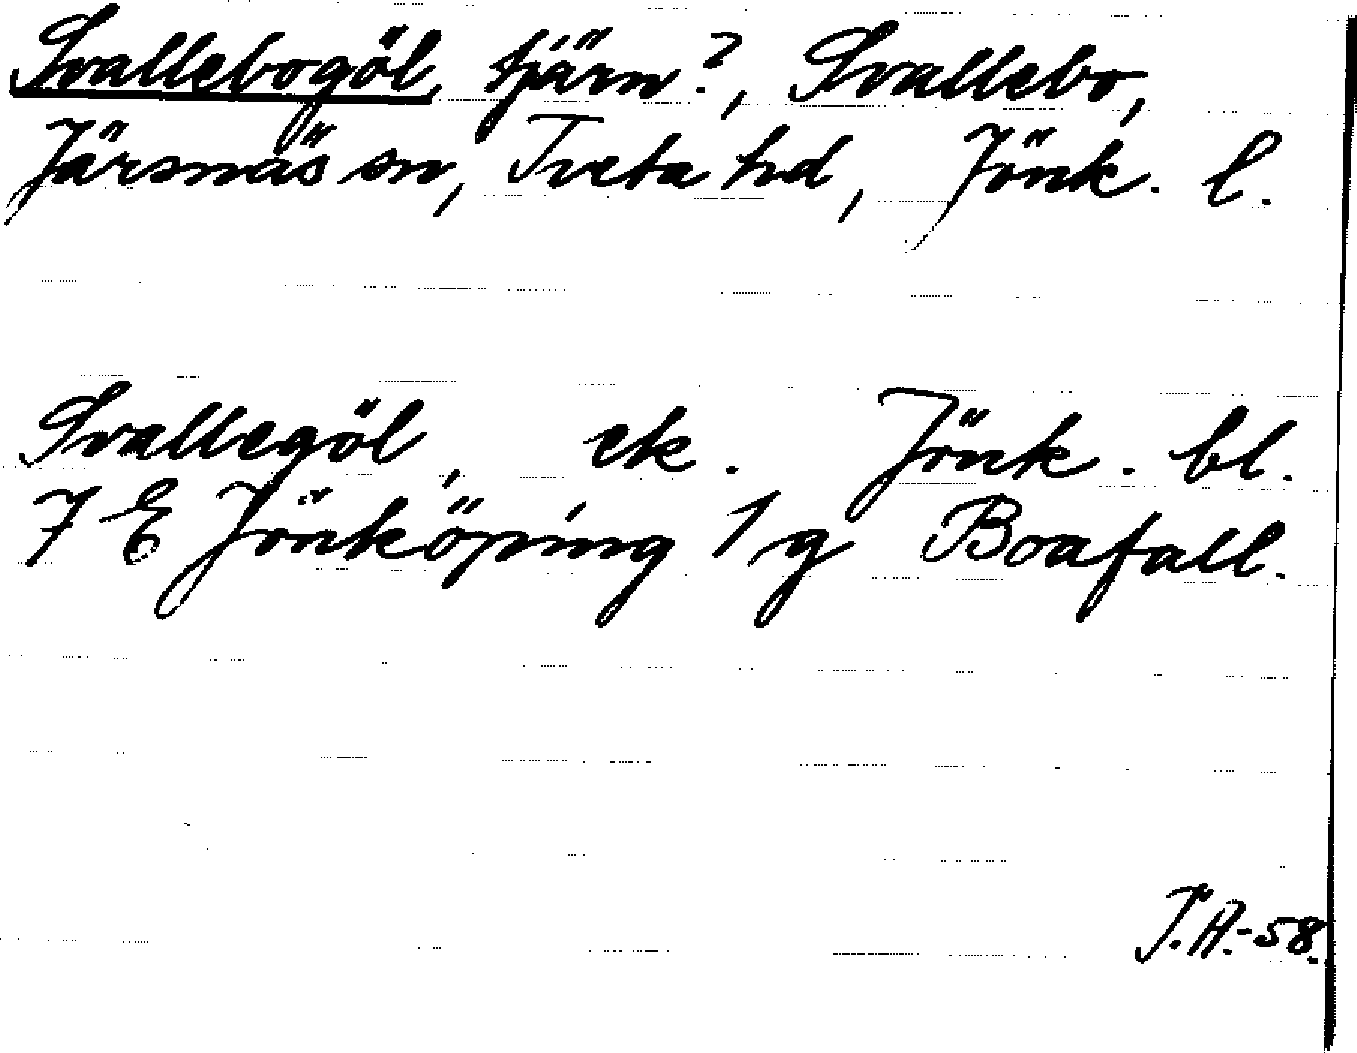 Svallebogöl, tjärn?, Svallebo,
Järsnäs sn, Tveta hd, Jönk. l.
Svallegöl, ek. Jönk. bl.
7 E Jönköping 1 g Boafall.
J.A.-58.